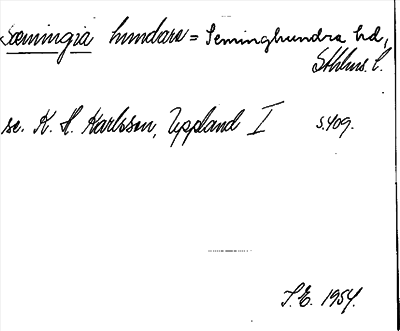 Sæmingia hundare = Seminghundra hd,
Sthlms. l.
se. K. H. Karlsson, Uppland I s. 409.
S. E. 1954.